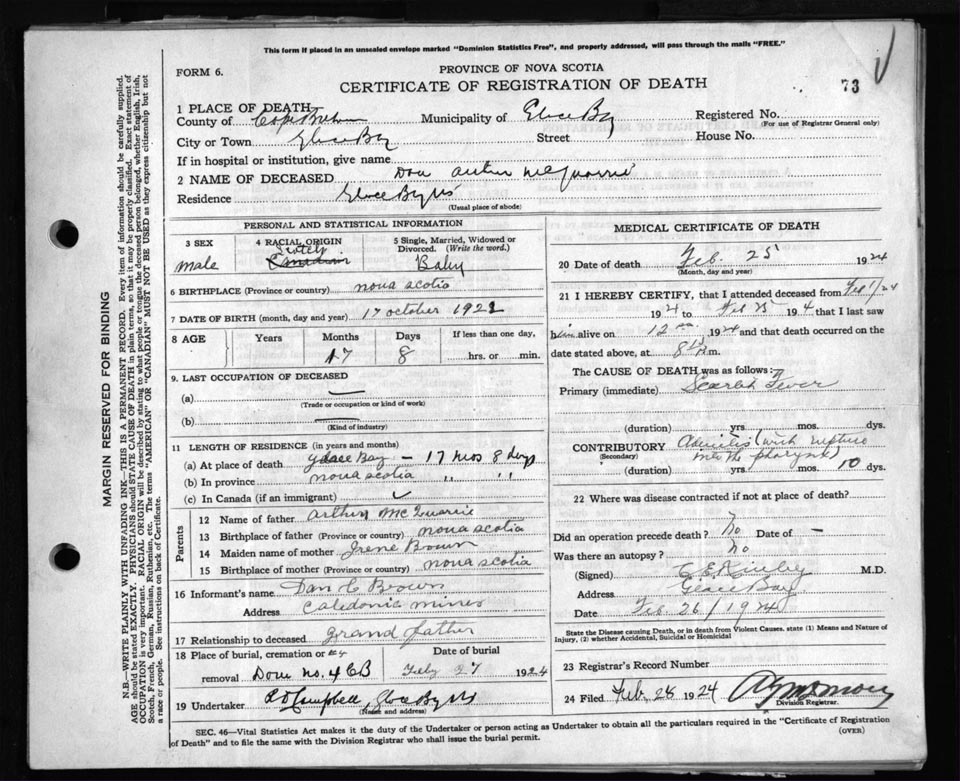 This form if placed in an unsealed envelope marked "Dominion Statistics Free", and properly addressed, will pass through the mails "FREE."
FORM 6.
PROVINCE OF NOVA SCOTIA
CERTIFICATE OF REGISTRATION OF DEATH
73
1 PLACE OF DEATH
County of Cape Breton Municipality of Glace Bay Registered No.
(For use of Registrar General only)
City or Town Glace Bay Street House No.
If in hospital or institution, give name
2 NAME OF DECEASED Don Arthur McQuarrie
Residence Glace Bay NS
(Usual place of abode)
PERSONAL AND STATISTICAL INFORMATION
3 SEX
male
4 RACIAL ORIGIN
Scotch
Canadian
5 Single, Married, Widowed or Divorced. (Write the word.)
Baby
6 BIRTHPLACE (Province or country) nova scotia
7 DATE OF BIRTH (month, day and year) 17 october 1922
8 AGE Years Months Days If less than one day,
17 8 hrs. or min.
9. LAST OCCUPATION OF DECEASED
(a)
(Trade or occupation or kind of work)
(b)
(Kind of industry)
11 LENGTH OF RESIDENCE (in years and months)
(a) At place of death glace Bay – 17 mos 8 days
(b) In province nova scotia " "
(c) In Canada (if an immigrant)
Parents
12 Name of father arthur Mc Quarrie
13 Birthplace of father (Province or country) nova scotia
14 Maiden name of mother Irene Brown
15 Birthplace of mother (Province or country) nova scotia
16 Informant's name Dan C Brown
Address Caledonia mines
17 Relationship to deceased grand father
18 Place of burial, cremation or Date of burial
removal Dom No. 4 CB 27 1924
19 Undertaker Campbell, Glace Bay NS
(Name and address)
MEDICAL CERTIFICATE OF DEATH
20 Date of death Feb. 25 1924
(Month, day and year)
21 I HEREBY CERTIFY, that I attended deceased from Feb 1/24
1924 to Feb 25 1924 that I last saw
him alive on 12 1924 and that death occurred on the
date stated above, at 8 m.
The CAUSE OF DEATH was as follows:
Primary (immediate) Scarlet Fever
(duration) yrs. mos. dys.
CONTRIBUTORY Adenitis (with rupture
(Secondary) into the pharynx)
(duration) yrs. mos. 10 dys.
22 Where was disease contracted if not at place of death?
?
Did an operation precede death? No Date of –
Was there an autopsy? No
(Signed) M.D.
Address Glace Bay
Date Feb. 26/1924
State the Disease causing Death, or in death from Violent Causes, state (1) Means and Nature of Injury, (2) whether Accidental, Suicidal or Homicidal
23 Registrar's Record Number
24 Filed Feb. 28 1924
Division Registrar.
SEC. 46—Vital Statistics Act makes it the duty of the Undertaker or person acting as Undertaker to obtain all the particulars required in the "Certificate of Registration
of Death" and to file the same with the Division Registrar who shall issue the burial permit.
(OVER)
MARGIN RESERVED FOR BINDING
N.B.—WRITE PLAINLY WITH UNFADING INK—THIS IS A PERMANENT RECORD. Every item of information should be carefully supplied.
AGE should be stated EXACTLY. PHYSICIANS should STATE CAUSE OF DEATH in plain terms, so that it may be properly classified. Exact statement of
OCCUPATION is very important. RACIAL ORIGIN will be described by stating to what people or tongue the deceased person belonged, whether English, Irish,
Scotch, French, German, Russian, Ruthenian, etc. The terms "AMERICAN" OR "CANADIAN" MUST NOT BE USED as they express citizenship but not
a race or people. See instructions on back of Certificate.